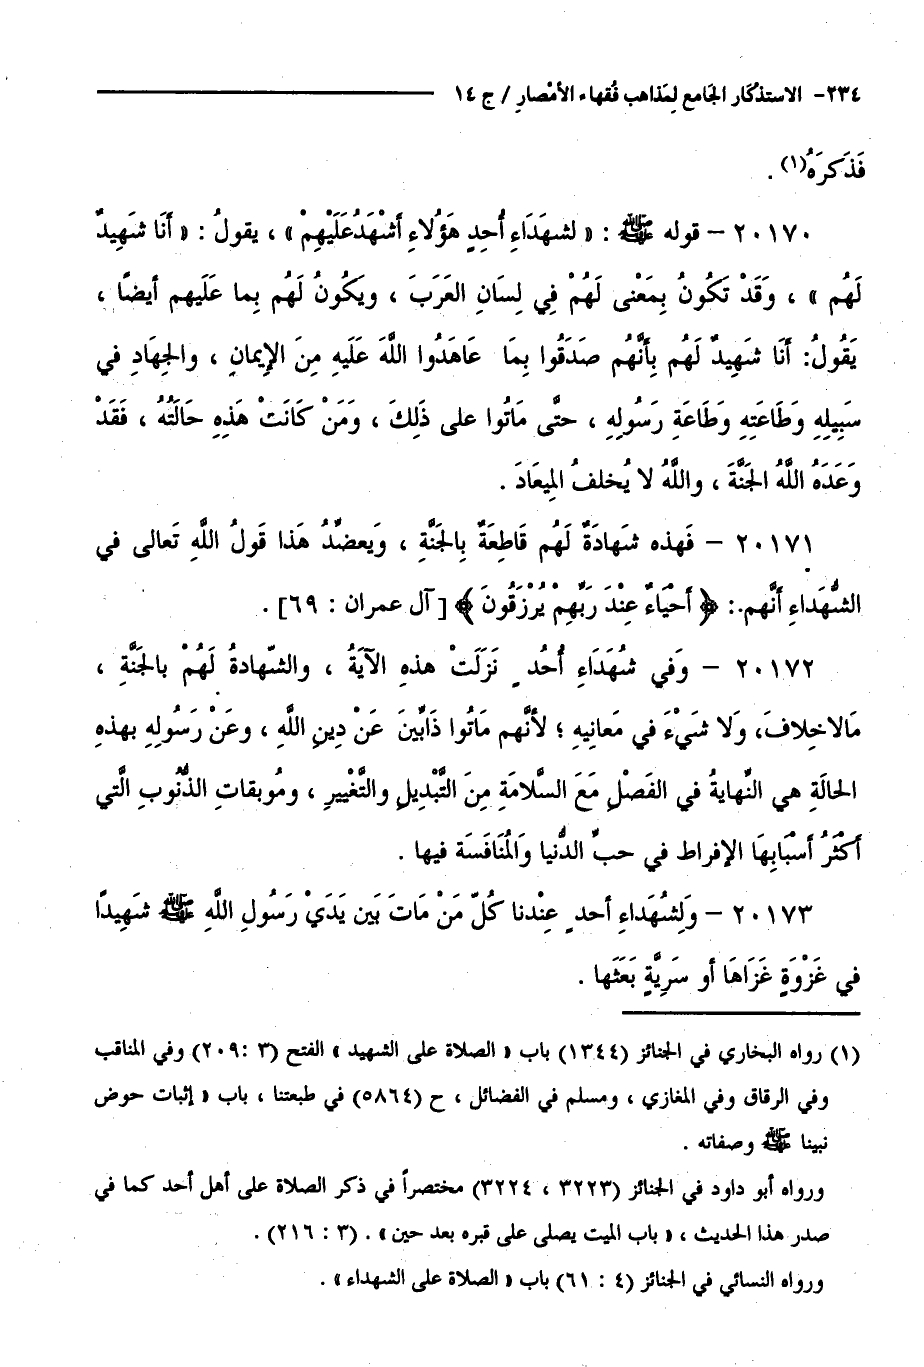 ٢٣٤- الاستذكار الجامع لمَذاهب فُقهاء الأمْصارِ / ج ١٤
فَذَكرَهُ(١) .
٢٠١٧٠ – قوله ﷺ : « لشهَدَاءِ أُحدٍ هَؤُلاءِ أشْهَدُعَلَيْهِمْ » ، يقولُ : « أنَا شَهِيدٌ
لَهُم » ، وَقَدْ تَكُونُ بِمَعْنى لَهُمْ فِي لِسَانِ العَرَبَ ، ويَكُونُ لَهُم بِما عَلَيهم أيضًا ،
يَقُولُ: أنَا شَهِيدٌ لَهُم بِأنَّهُم صَدَقُوا بِمَا عَاهَدُوا اللَّهَ عَلَيهِ مِنَ الإيمانِ ، والجِهَادِ في
سَبِيلِهِ وَطَاعَتِهِ وَطَاعَةِ رَسُولِهِ ، حتَّى مَاتُوا على ذَلِكَ ، وَمَنْ كَانَتْ هَذِهِ حَالَتُهُ ، فَقَدْ
وَعَدَهُ اللَّهُ الجَنَّةَ ، واللَّهُ لا يُخلفُ المِيعَادَ .
٢٠١٧١ – فَهذه شهادَةٌ لَهُم قَاطِعَةٌ بِالجَنَّةِ ، وَيَعضدُ هَذا قَولُ اللَّهِ تَعالى في
الشُّهَداءِ أنَّهم.: ﴿ أحْيَاءٌ عِنْدَ رَبِّهِمْ يُرْزَقُونَ ﴾ [ آل عمران : ٦٩] .
٢٠١٧٢ – وَفي شُهَدَاءِ أُحُدٍ نَزَلَتْ هذهِ الآيَةُ ، والشّهادةُ لَهُمْ بالجَنَّةِ ،
مَالاخِلافَ، وَلا شَيْءَ في مَعانِيهِ ؛ لأنَّهم مَاتُوا ذَابِّينَ عَنْ دِينِ اللَّهِ ، وعَنْ رَسُولِهِ بهذهِ
الحالَةِ هي النِّهايةُ في الفَضْلِ مَعَ السَّلامَةِ مِنَ التَّبْدِيلِ والتَّغْييرِ ، ومُوبقاتِ الذُّنُوبِ الَّتي
أكْثَرُ أسْبَابِهَا الإفراط في حبِّ الدُّنيا وَالمُنَافَسَة فيها .
٢٠١٧٣ – وَلِشُهَداءِ أحدٍ عِنْدنا كُلّ مَنْ مَاتَ بَين يَدَيْ رَسُولِ اللَّهِ ﷺ شَهِيدًا
في غَزْوَةٍ غَزَاهَا أو سَرِيَّةٍ بَعَثَها .
(١) رواه البخاري في الجنائز (١٣٤٤) باب « الصلاة على الشهيد » الفتح (٣ :٢٠٩) وفي المناقب
وفي الرقاق وفي المغازي ، ومسلم في الفضائل ، ح (٥٨٦٤) في طبعتنا ، باب « إثبات حوض
نبينا ﷺ وصفاته .
ورواه أبو داود في الجنائز (٣٢٢٣ ، ٣٢٢٤) مختصراً في ذكر الصلاة على أهل أحد كما في
صدر هذا الحديث ، « باب الميت يصلى على قبره بعد حين » . (٣ : ٢١٦) .
ورواه النسائي في الجنائز (٤ : ٦١) باب « الصلاة على الشهداء » .